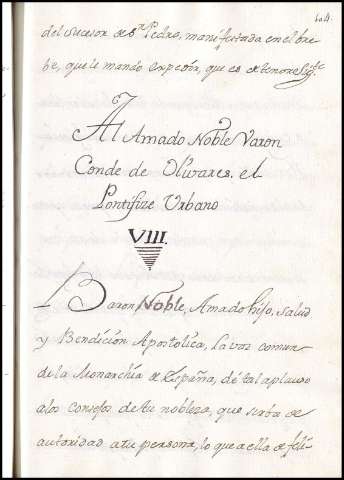 104.
del Sucesor de Sn. Pedro, manifestada en el bre-
be, que le mandò expedir, que es el tenor Sigte.
Al Amado Noble Varon
Conde de Olivares. el
Pontifize Urbano
VIII.
Baron Noble, Amado hijo, Salud
y Bendicion Apostolica, La voz comun
de la Monarchia de España, dà tal aplauso
a los Consejos de tu nobleza, que sirba de
autoridad a tu persona, lo que a ella de feli-